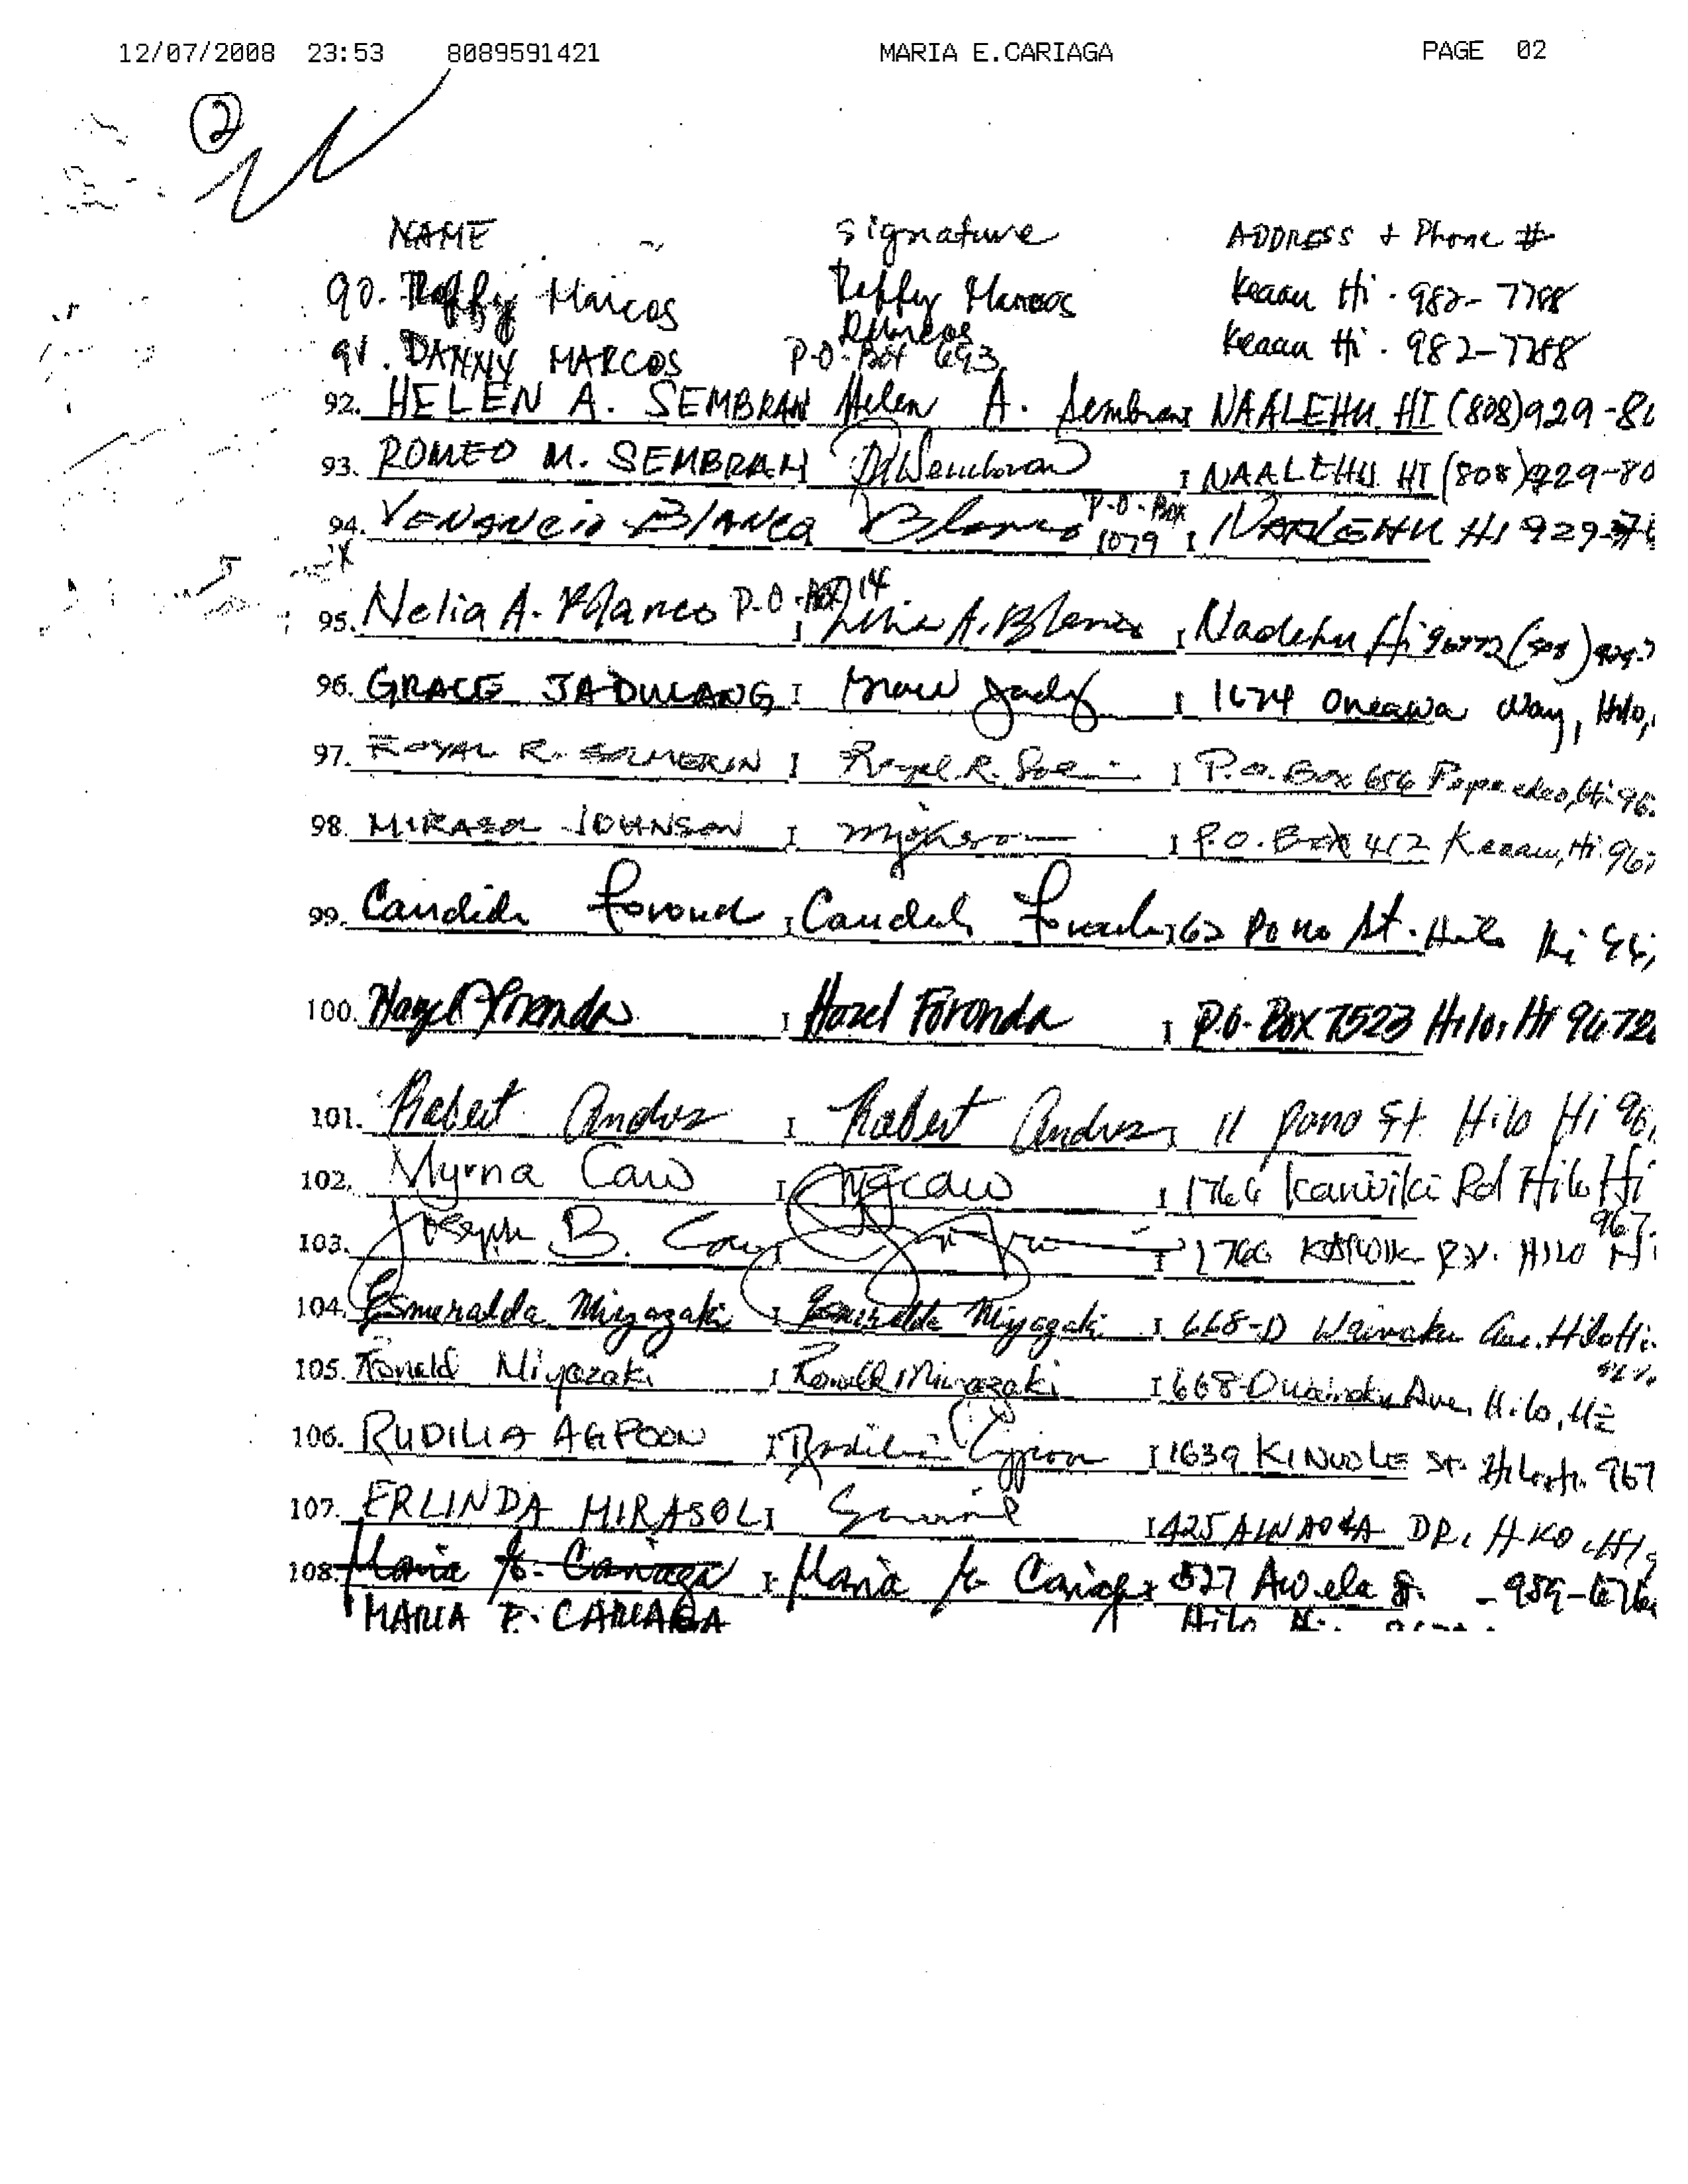 12/07/2008 23:53 8089591421 MARIA E.CARIAGA PAGE 02
2
NAME Signature ADDRESS & Phone #
90. Raffy Marcos Raffy Marcos Keaau Hi. 982-7788
91. DANNY MARCOS P.O. Box 693 DMarcos Keaau Hi. 982-7788
92. HELEN A. SEMBRAN Helen A. Sembran NAALEHU HI (808)929-8
93. ROMEO M. SEMBRAN RMSembran I NAALEHU HI (808)929-80
94. VENANCIO BLANCO VBlanco P.O. Box 1079 I NAALEHU HI 929-7
95. Nelia A. Blanco P.O. Box 14 I A. Blanco I Naalehu Hi 96772 (808)
96. GRACE JADULANG I Grace I 1674 Oneawa Way, Hilo,
97. ROYAL R. I Royal R. I P.O. Box 656 Pepeekeo, Hi. 96
98. MIRASOL JOHNSON I I P.O. Box 412 Keaau, Hi. 967
99. Candida Foronda I Candida Foronda I 62 Pono St. Hilo Hi 96
100. Hazel Foronda I Hazel Foronda I P.O. Box 7523 Hilo, HI 9672
101. Robert Andres I Robert Andres I 11 Pono St. Hilo Hi 967
102. Myrna Caw I Caw I 1766 Kawiki Rd Hilo Hi
967
103. Joseph B. Caw I I 1766 HILO HI
104. Esmeralda Miyazaki I Esmeralda Miyazaki I 668-D Wainaku Ave. Hilo Hi.
105. Ronald Miyazaki I Ronald Miyazaki I 668-D Wainaku Ave, Hilo, HI
106. RUDILIA AGPOON I Rudilia Agpoon I 1639 KINOOLE St. Hilo, Hi. 967
107. ERLINDA MIRASOL I I 425 AINAOLA DR,
108. Maria E. Cariaga I Maria E. Cariaga I 527 Awela St. - 959-
MARIA E. CARIAGA Hilo Hi.